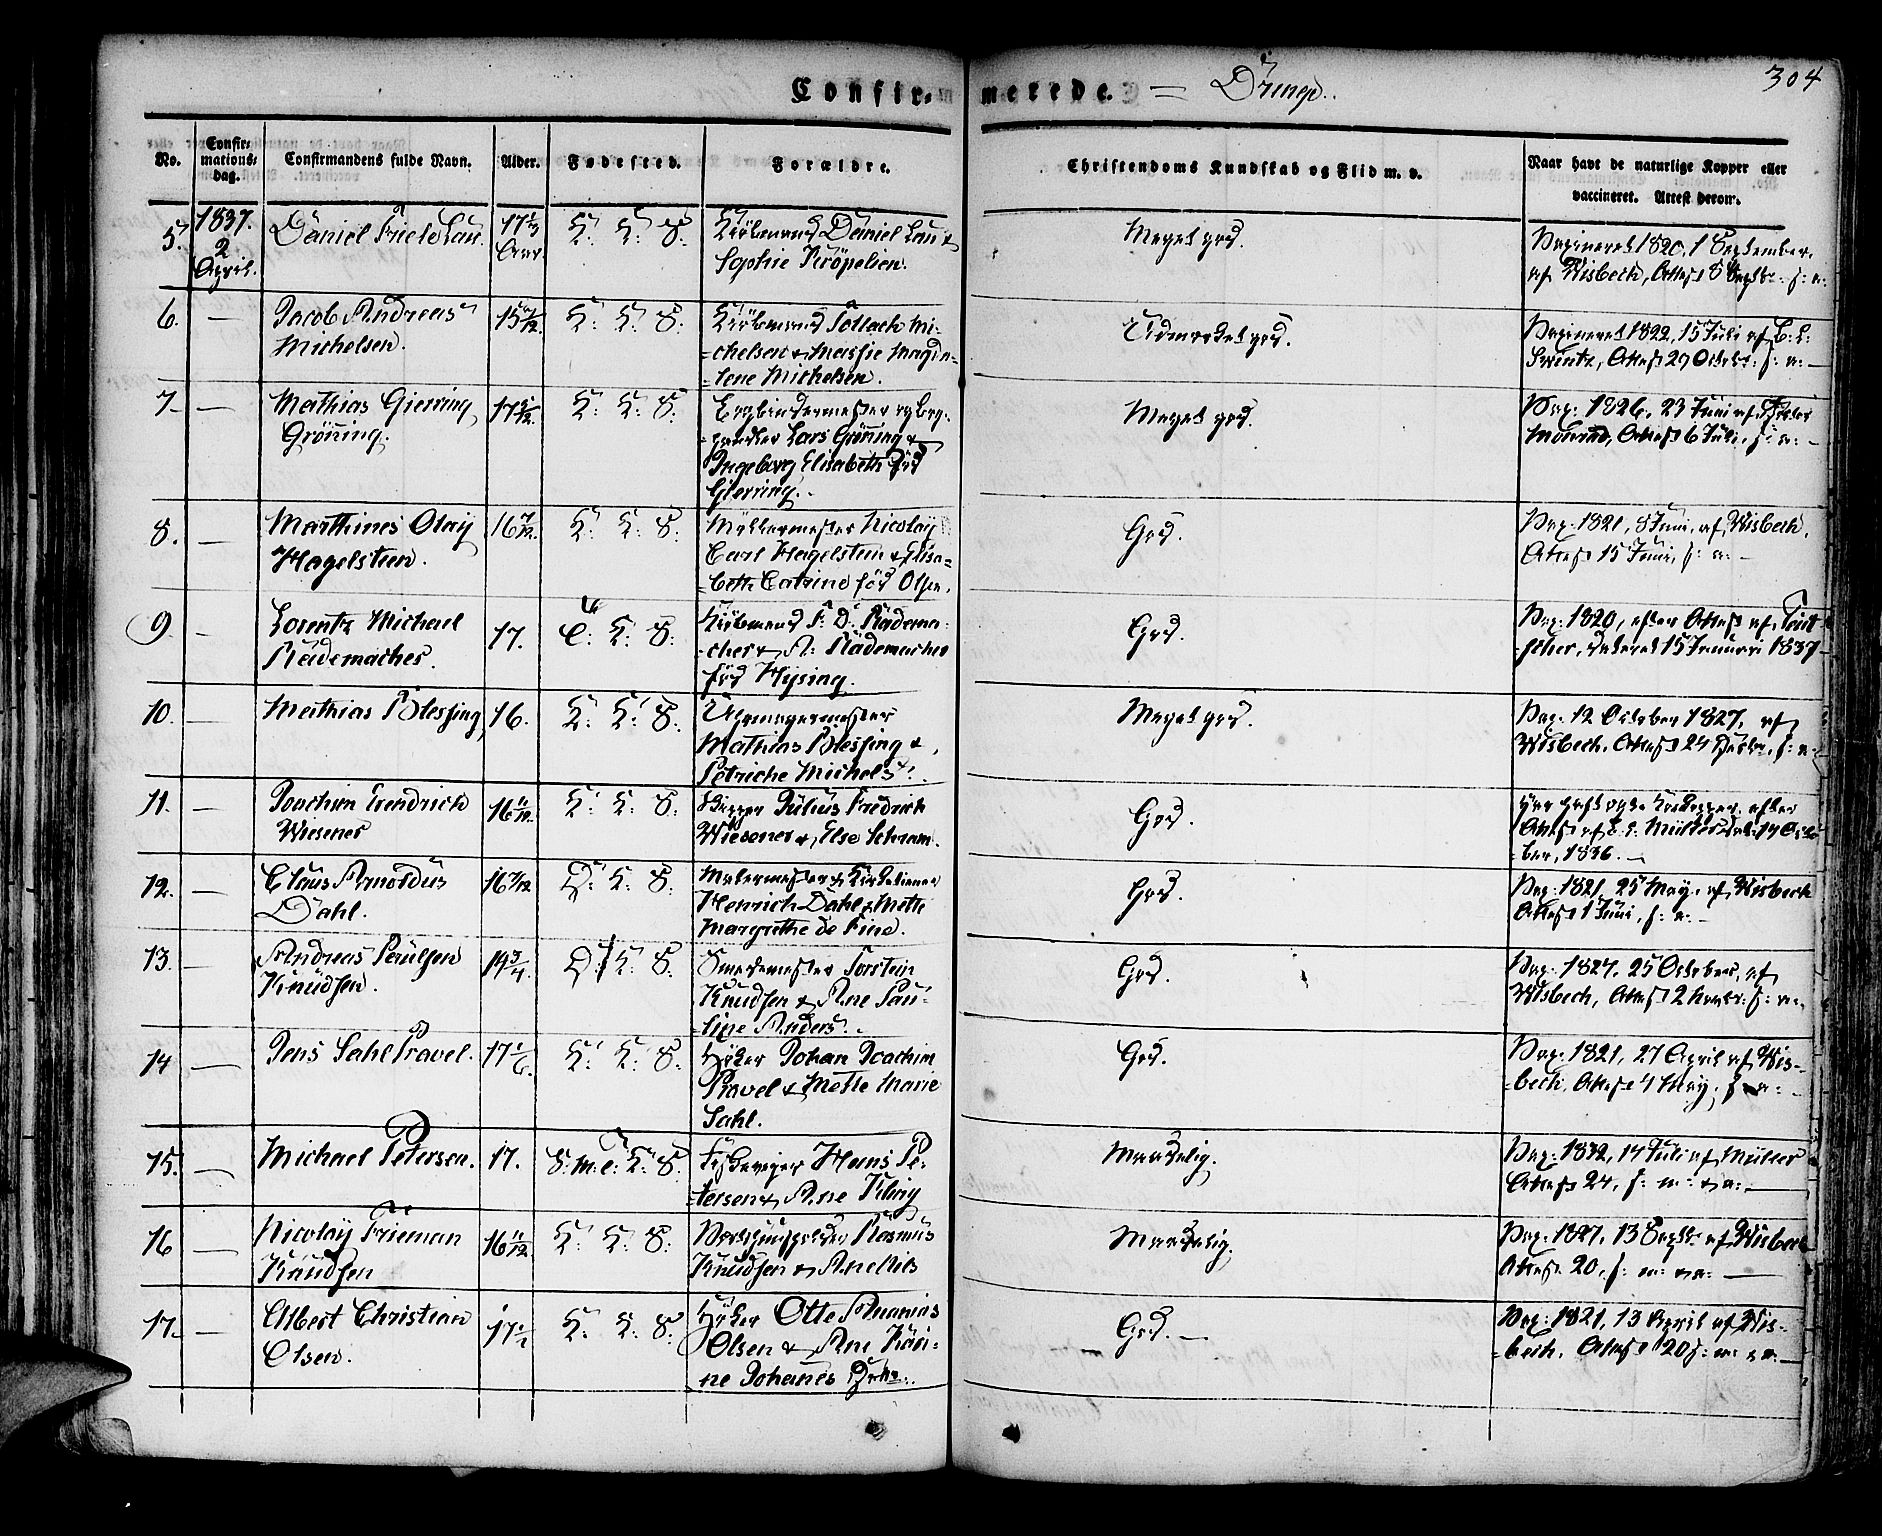 304
Confir- merede. = Drenge.
No. Confir-mations-dag. Confirmandens fulde Navn. Alder. Fødested. Forældre. Christendoms Kundskab og Flid m. v. Naar havt de naturlige Kopper eller vaccineret. Attest derom.
5. 1837. 2 April. Daniel Friele Lau 17 Aar. K: K: S: Kiöbmand Daniel Lau &
Sophie Kröpelien. Meget god. Vaxineret 1820, 1 September,
af Wisbech, Attest 8 Septbr: s: a:
6. — Jacob Andreas
Michelsen. 15 K: K: S: Kiöbmand Tollach Mi-
=chelsen & Massie Magda-
=lene Michelsen. Udmærket god. Vaxineret 1822, 15 Juli af C: L:
Swintz, Attest 29 Octobr: s: a: —
7 — Mathias Gierring
Grönning. 17 5/12. K: K: S: Bogbindermester og Bog-
=handler Lars Grönning &
Ingeborg Elisabeth föd
Gierring. Meget god. Vax: 1826, 23 Juni af
Monrad, Attest 6 Juli, s: a: —
8. — Marthines Olay
Hagelstien. 16 7/12. K: K: S: Møllermester Nicolay
Carl Hagelstein & Elisa-
beth Catrine föd Olsen. God. Vax: 1821, 8 Juni, af Wisbech,
Attest 15 Juni, s: a: —
9. — Lorentz Michael
Rademacher. 17. C: K: S: Kiöbmand F: D: Radema-
cher & A: Rademacher
föd Hysing. God. Vax: 1820, efter Attest af
dateret 15 Januari 1837
10. — Mathias Blessing 16. K: K: S: Uhrmagermester
Mathias Blessing &
Petriche Michels. Meget god. Vax: 12 October 1827, af
Wisbech, Attest 24 s: a:
11. — Joachim Frendrich
Wiesener 16 11/12. K: K: S: Skipper Julius Fredrich
Wiesener & Else Schram. God. Attest af Müller dat: 17 Octo-
=ber, 1836. —
12. — Claus Arnoldus
Dahl. 16 7/12 D: K: S: Malermester & Kirketiener
Henrich Dahl & Mette
Margrethe de Fine. God. Vax: 1821, 25 May, af Wisbech
Attest 1 Juni, s: a: —
13. — Andreas Paulsen
Knudsen. 19 3/4. D: K: S: Smedemester Torstein
Knudsen & Ane Pau-
=line Anders. God. Vax: 1827, 25 October, af
Wisbech, Attest 2 Novbr: s: a:
14 — Jens Sahl Pravel. 17 1/6. K: K: S: Høker Johan Joachim
Pravel & Mette Marie
Sahl. God. Vax: 1821, 27 April af Wis-
=bech, Attest 4 May, s: a:
15. — Michael Petersen. 17. S: M: C: K: S: Hans Pe-
tersen & Ane Kling Maadelig. Vax: 1832, 17 Juli af Müller
Attest 24, s: m: & a: —
16 — Nicolay Frieman
Knudsen 16 11/12. K: K: S: Rasmus
Knudsen & Ane Nils Maadelig. Vax: 1827, 13 Septbr: af Wisbech
Attest 20, s: m: & a: —
17. — Albert Christian
Olsen. 17 K: K: S: Høker Otte Ananias
Olsen & Ane Kari-
ne Johanes God. — Vax: 1821, 13 April af Wis-
=bech, Attest 20 s: m: & a: —